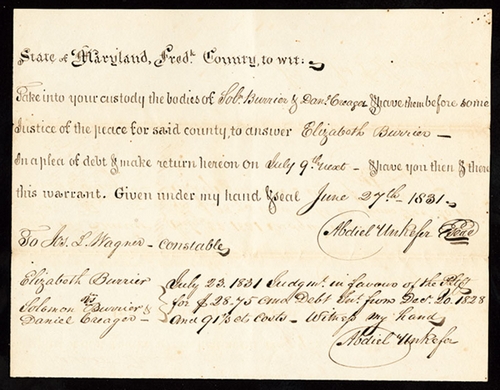 State of Maryland, Fredk. County, to wit:
Take into your custody the bodies of Sol. Burrier & Danl. Creager & have them before some
Justice of the peace for said county, to answer Elizabeth Burrier —
In a plea of debt & make return hereon on July 9th next — & have you then & there
this warrant. Given under my hand & seal June 27th 1831.
Abdiel Unkefer Seal
To Jos. L. Wagner — Constable
Elizabeth Burrier July 23. 1831 Judgmt. in favour of the Pltff
vs
Solomon Burrier & for $ 28.75 and Debt Int. from Dec. 20. 1828
Daniel Creager — and 91⅓ cts costs — Witness my hand
Abdiel Unkefer